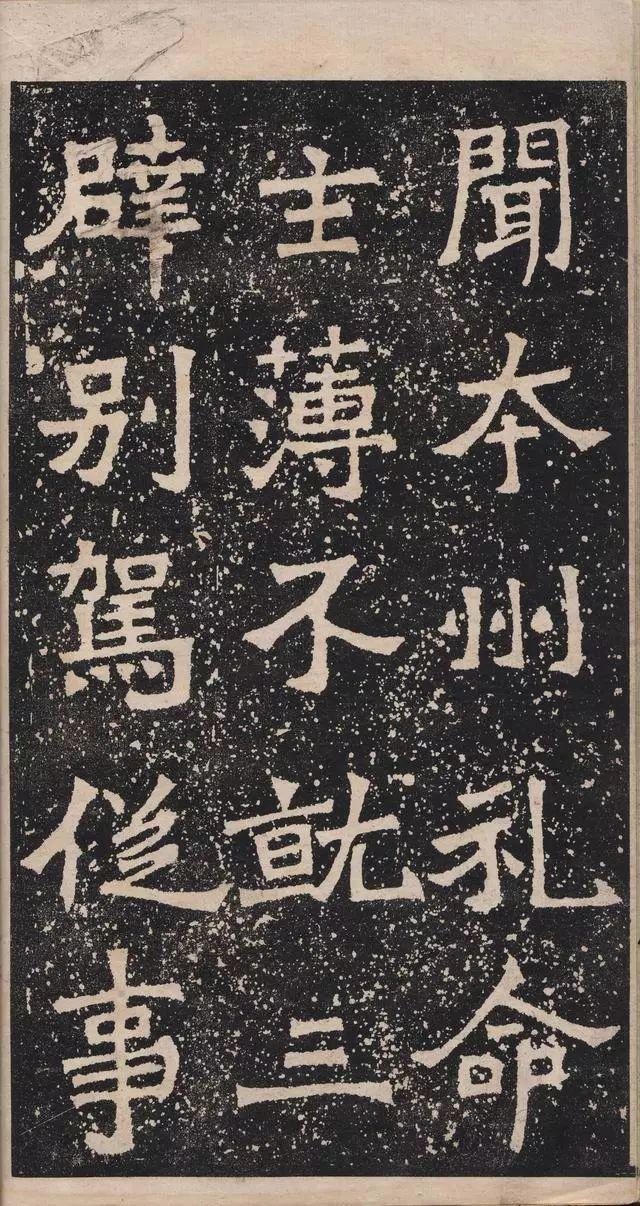 聞本州礼命
主薄不就三
辟别駕従事